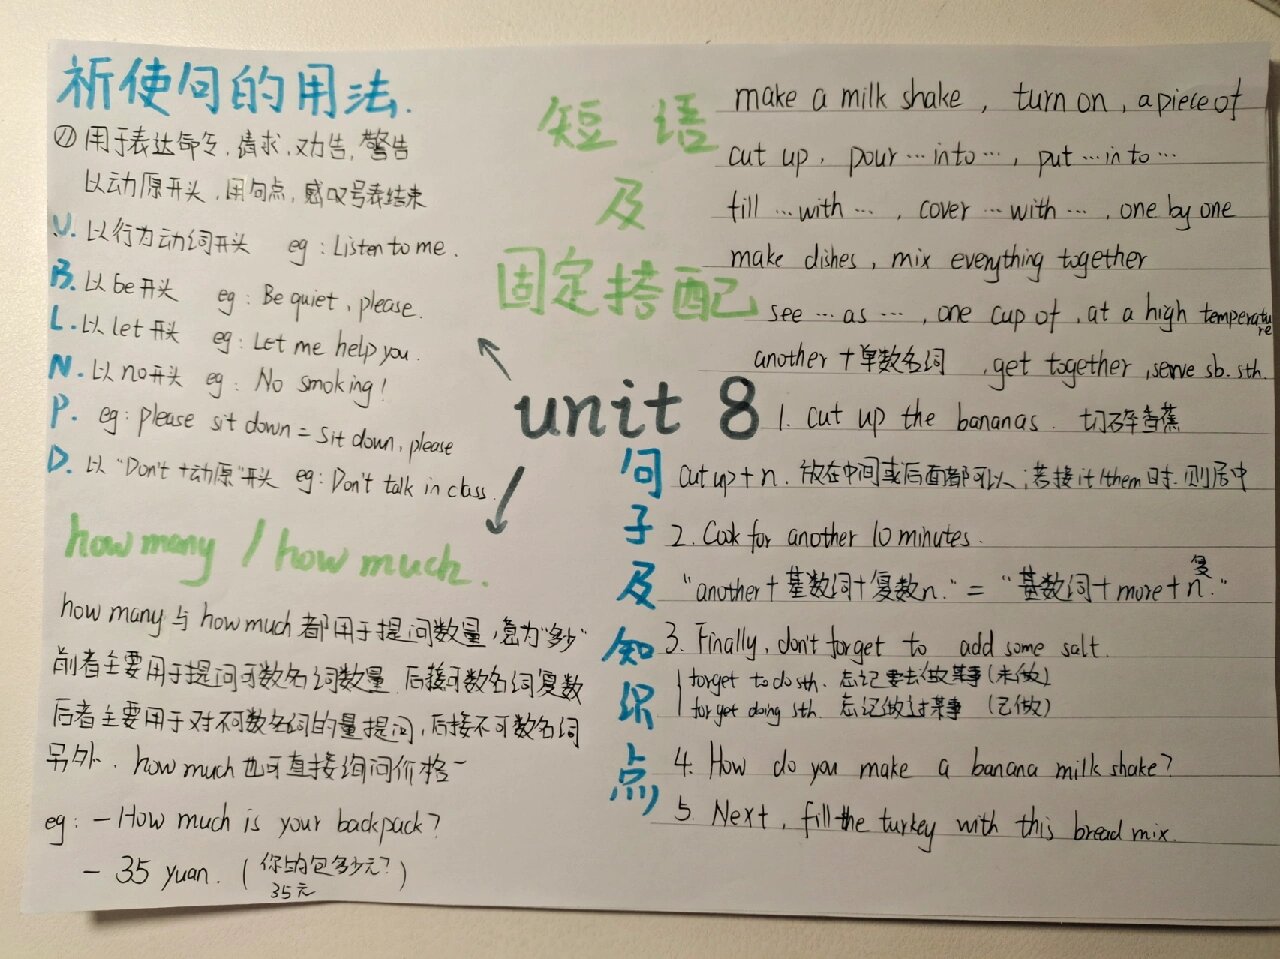 祈使句的用法.
用于表达命令,请求,劝告,警告
以动原开头,用句点,感叹号表结束
V. 以行为动词开头 eg: Listen to me.
B. 以be开头 eg: Be quiet, please.
L. 以let开头 eg: Let me help you.
N. 以no开头 eg: No smoking!
P. eg: please sit down = sit down, please
D. 以"Don't+动原"开头 eg: Don't talk in class.
how many / how much.
how many与how much都用于提问数量,意为"多少"
前者主要用于提问可数名词数量 后接可数名词复数
后者主要用于对不可数名词的量提问,后接不可数名词
另外. how much也可直接询问价格
eg: - How much is your backpack?
- 35 yuan. (你的包多少元?
35元)
unit 8
短语
及
固定搭配
make a milk shake, turn on, a piece of
cut up, pour … into …, put … in to …
fill … with …, cover … with …, one by one
make dishes, mix everything together
see … as …, one cup of, at a high temperature
another + 单数名词, get together, serve sb. sth.
句子及知识点
1. cut up the bananas. 切碎香蕉
cut up + n. 放在中间或后面都可以;若接it/them时.则居中
2. Cook for another 10 minutes.
"another+基数词+复数n." = "基数词+more+n复."
3. Finally, don't forget to add some salt.
forget to do sth. 忘记要去做某事(未做)
forget doing sth. 忘记做过某事 (已做)
4. How do you make a banana milk shake?
5. Next, fill the turkey with this bread mix.